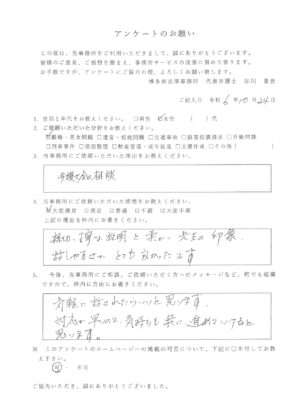 アンケートのお願い
この度は、当事務所をご利用いただきまして、誠にありがとうございます。
皆様のご意見、ご感想を踏まえ、事務所サービスの改善に努めて参ります。
お手数ですが、アンケートにご協力の程、よろしくお願い致します。
博多南法律事務所 代表弁護士 谷川 貴浩
ご記入日 令和 6年10月24日
1. 性別と年代をお教えください。 □男性 女性 ( )代
2. ご依頼いただいた分野をお教えください。
離婚・男女問題 □遺言・相続問題 □交通事故 □借金債務清算 □労働問題
□刑事事件 □債権整理 □財産管理・成年後見 □文書作成 □その他( )
3. 当事務所にご依頼いただいた理由をお教えください。
弁護士会の相談
4. 当事務所にご依頼いただいた感想をお教えください。
大変満足 □満足 □普通 □不満 □大変不満
上記の理由を枠内にお書きください。
親切、丁寧な説明と柔かい先生の印象。
話しやすさがとても良かったです
5. 今後、当事務所にご相談、ご依頼いただく方へのメッセージなど、何でも結構
ですので、枠内に自由にお書きください。
気軽に話されたらいいと思います。
対応が早いので、気持ちも楽に進めていけると
思います。
※ このアンケートのホームページへの掲載の可否について、下記に○を付してお教
え下さい。
可 ・ 不可
ご協力いただき、誠にありがとうございました。